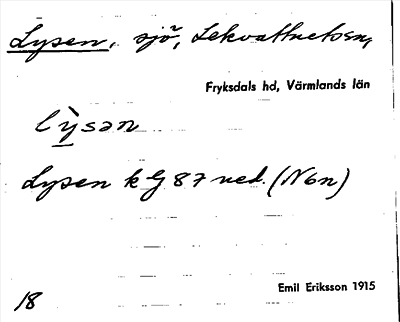 Lysen, sjö, Lekvattnet sn,
Fryksdals hd, Värmlands län
lỳsan
Lysen k G 87 ned. (N6n)
Emil Eriksson 1915
18